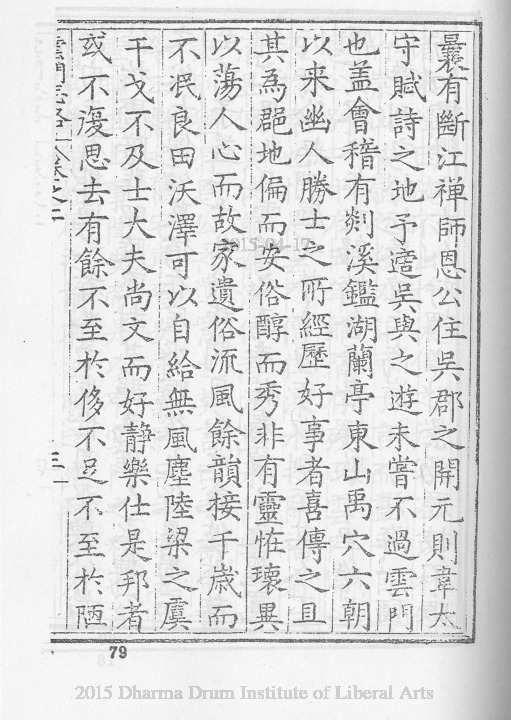 曩有斷江禪師恩公住吳郡之開元則韋太
守賦詩之地予適吳與之遊未嘗不過雲門
也盖會稽有剡溪鑑湖蘭亭東山禹穴六朝
以来幽人勝士之所經歷好事者喜傳之且
其為郡地偏而安俗醇而秀非有靈恠瓌異
以蕩人心而故家遺俗流風餘韻接千歳而
不泯良田沃澤可以自給無風塵陸梁之虞
干戈不及士大夫尚文而好静樂仕是邦者
或不復思去有餘不至於侈不足不至於陋
雲門志略 卷之二
三
79
2015-04-17
2015 Dharma Drum Institute of Liberal Arts